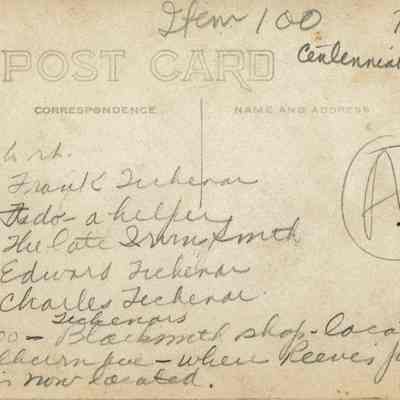 Item 100
Centennial
POST CARD
CORRESPONDENCE
NAME AND ADDRESS
Frank Tichenor
a helper
The late Irwin Smith
Edward Tichenor
Charles Tichenor
Tichenors
Blacksmith shop - loca
ave - where Reeves
is now located.
A